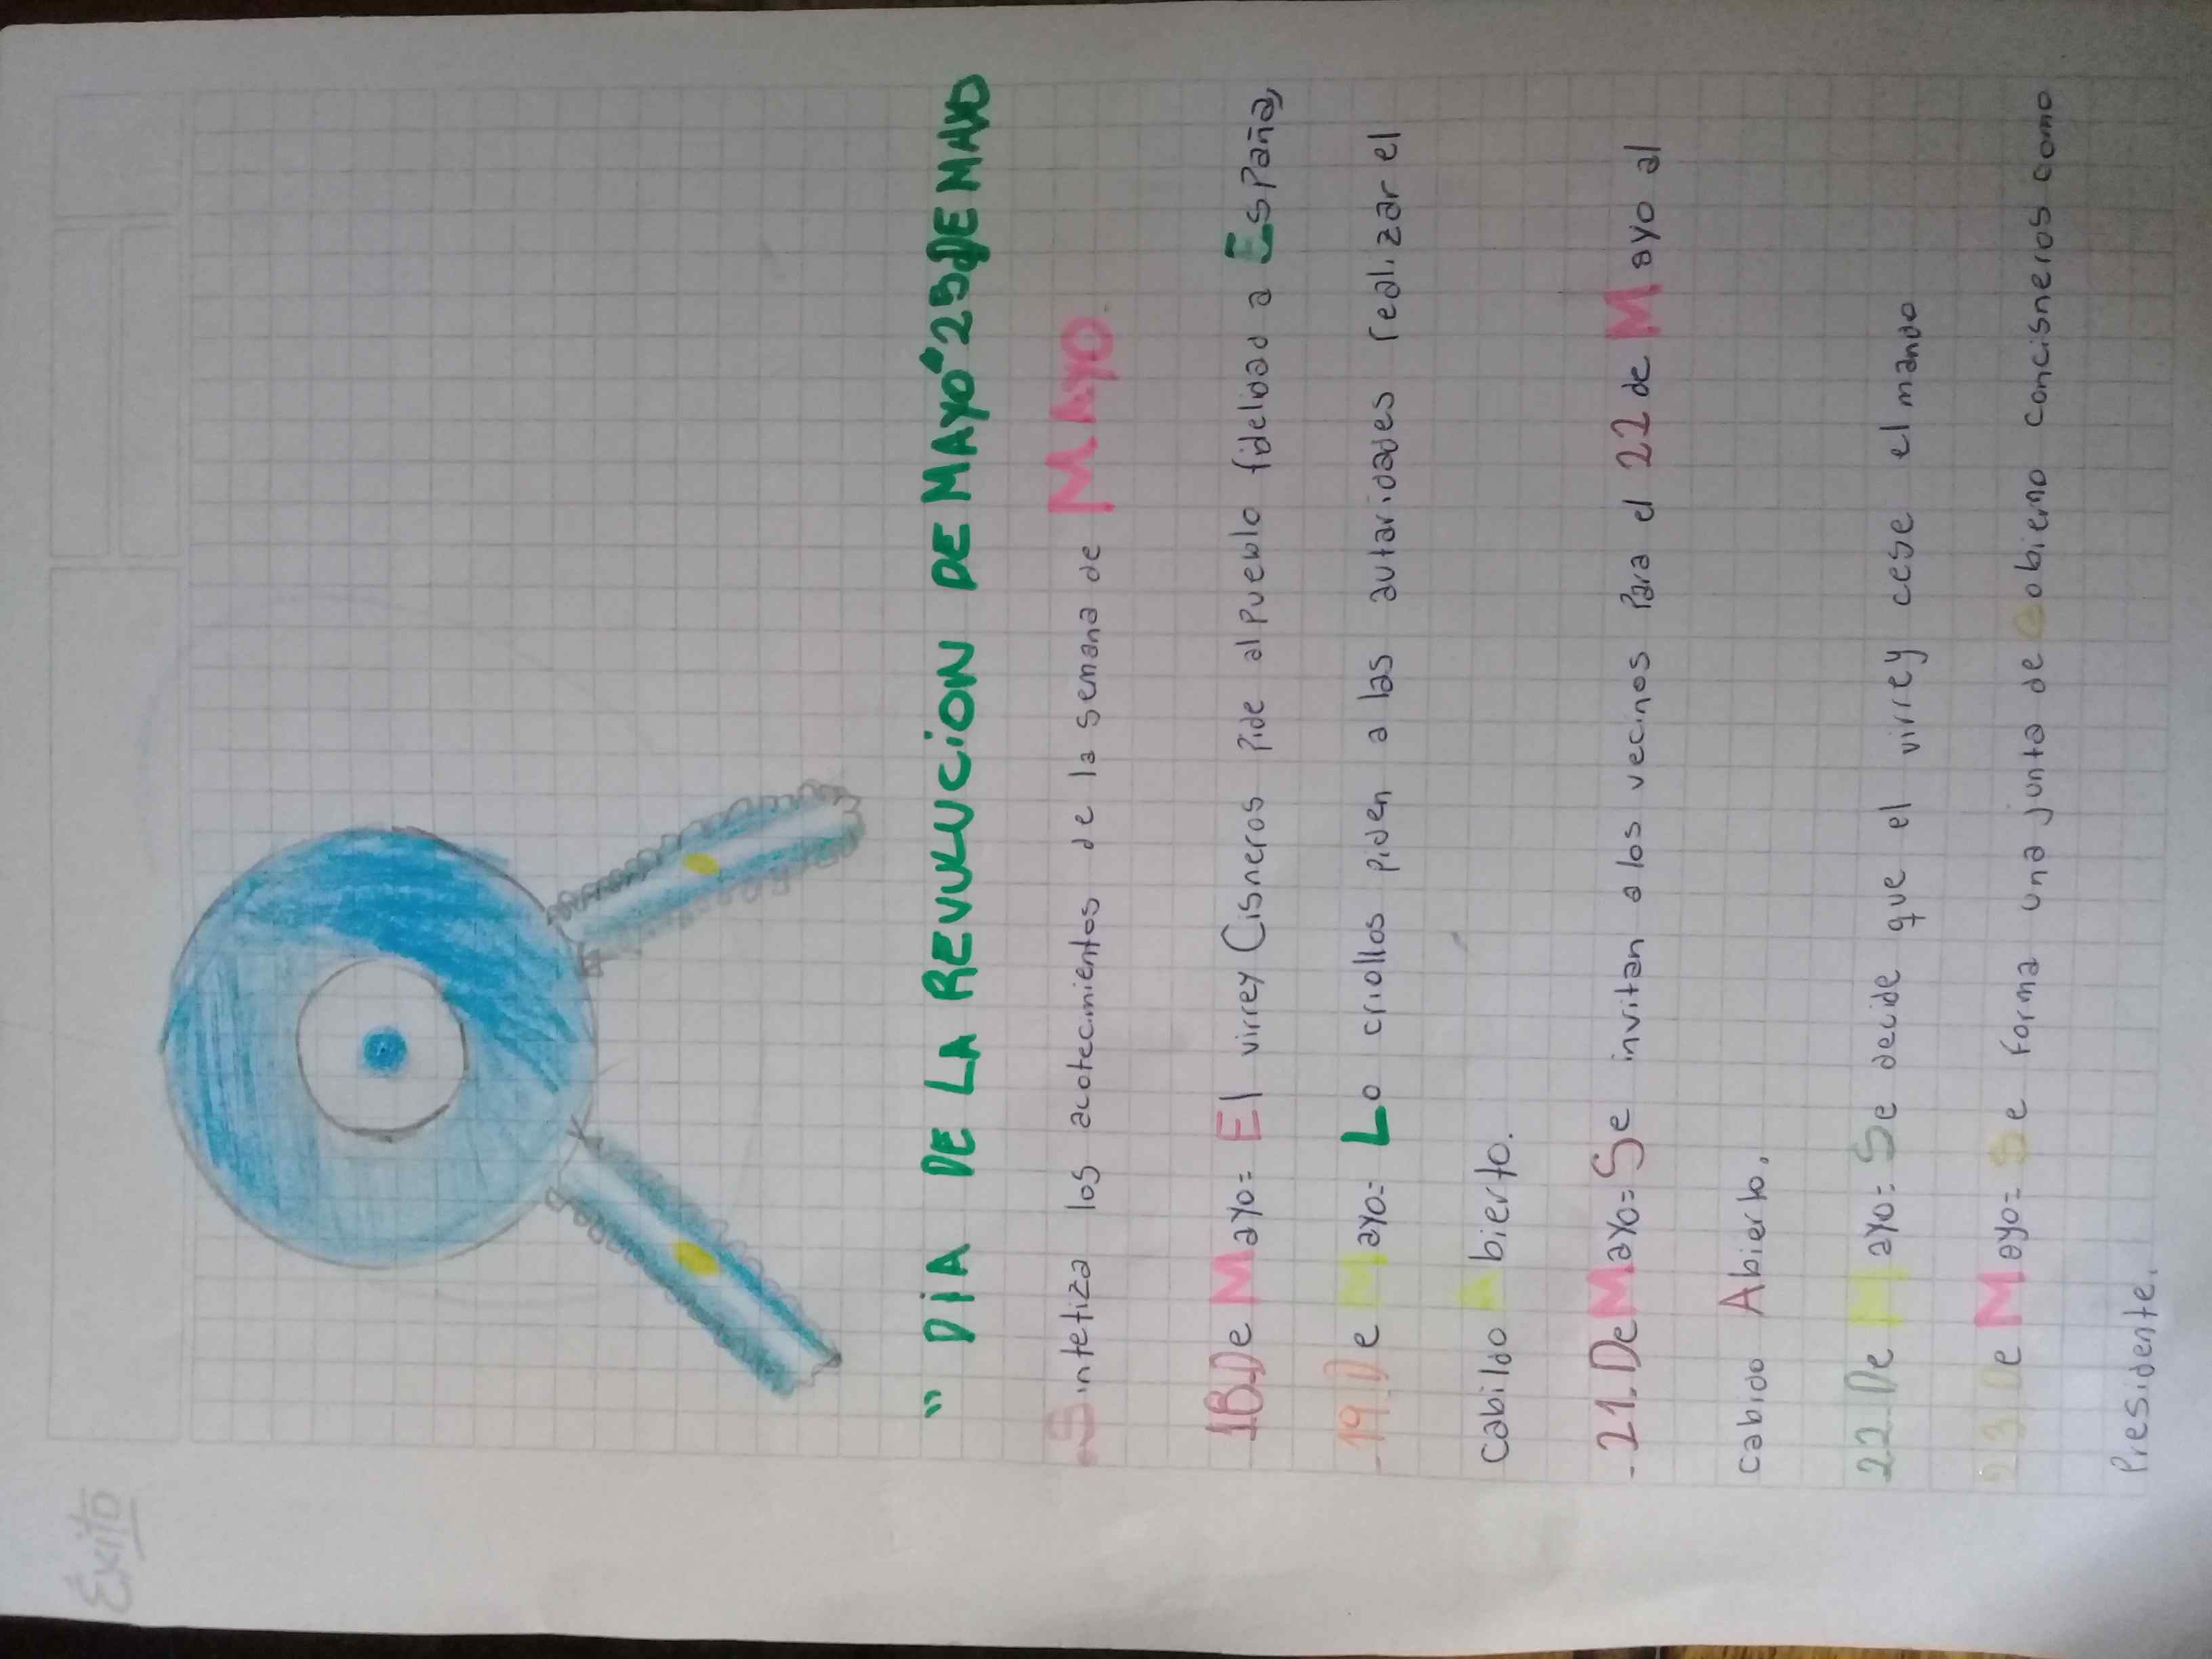 Éxito
" DIA DE LA REVULUCION DE MAYO" 25 DE MAYO
.Sintetiza los acotecimientos de la semana de MAYO.
18.De Mayo= El virrey Cisneros Pide al Pueblo fidelidad a España,
-19.De Mayo= Lo criollos piden a las autaridades realizar el
cabildo Abierto.
-21.De Mayo= Se invitan a los vecinos Para el 22 de Mayo al
cabido Abierto.
22.De Mayo= Se decide que el virrey cese el mando
23 De Mayo= Se forma una junta de Gobierno concisneros como
Presidente.